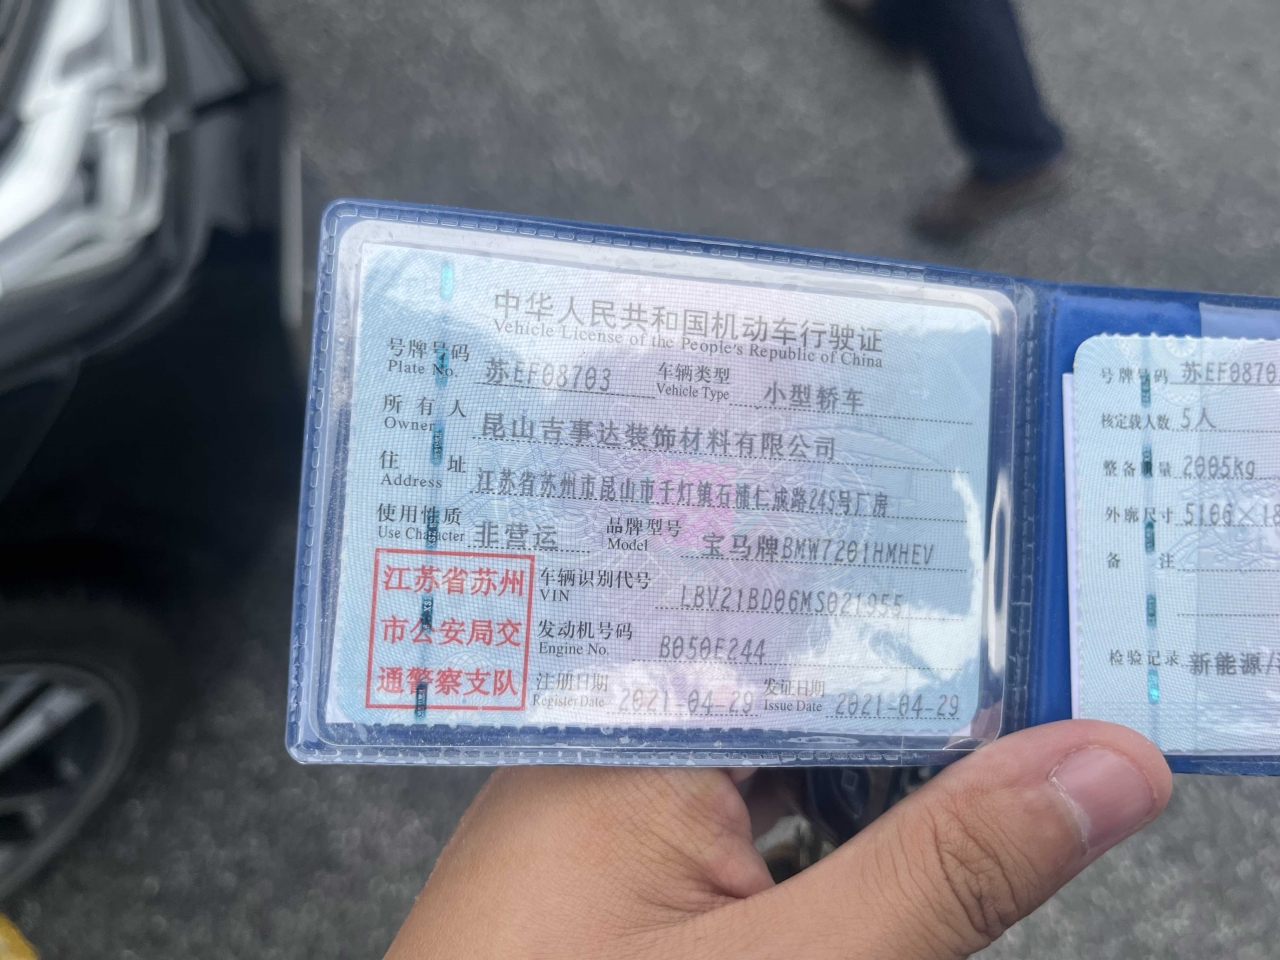 中华人民共和国机动车行驶证
Vehicle License of the People's Republic of China
号牌号码 苏EF08703 车辆类型 小型轿车
Plate No. Vehicle Type
所有人 昆山吉事达装饰材料有限公司
Owner
住址 江苏省苏州市昆山市千灯镇石浦仁诚路245号厂房
Address
使用性质 非营运 品牌型号 宝马牌BMW7201HMHEV
Use Character Model
江苏省苏州
市公安局交
通警察支队
车辆识别代号 LBV21BD06MS021955
VIN
发动机号码 B050E244
Engine No.
注册日期 2021-04-29 发证日期 2021-04-29
Register Date Issue Date
号牌号码 苏EF0870
核定载人数 5人
整备质量 2005kg
外廓尺寸 5106×18
备注
检验记录 新能源/